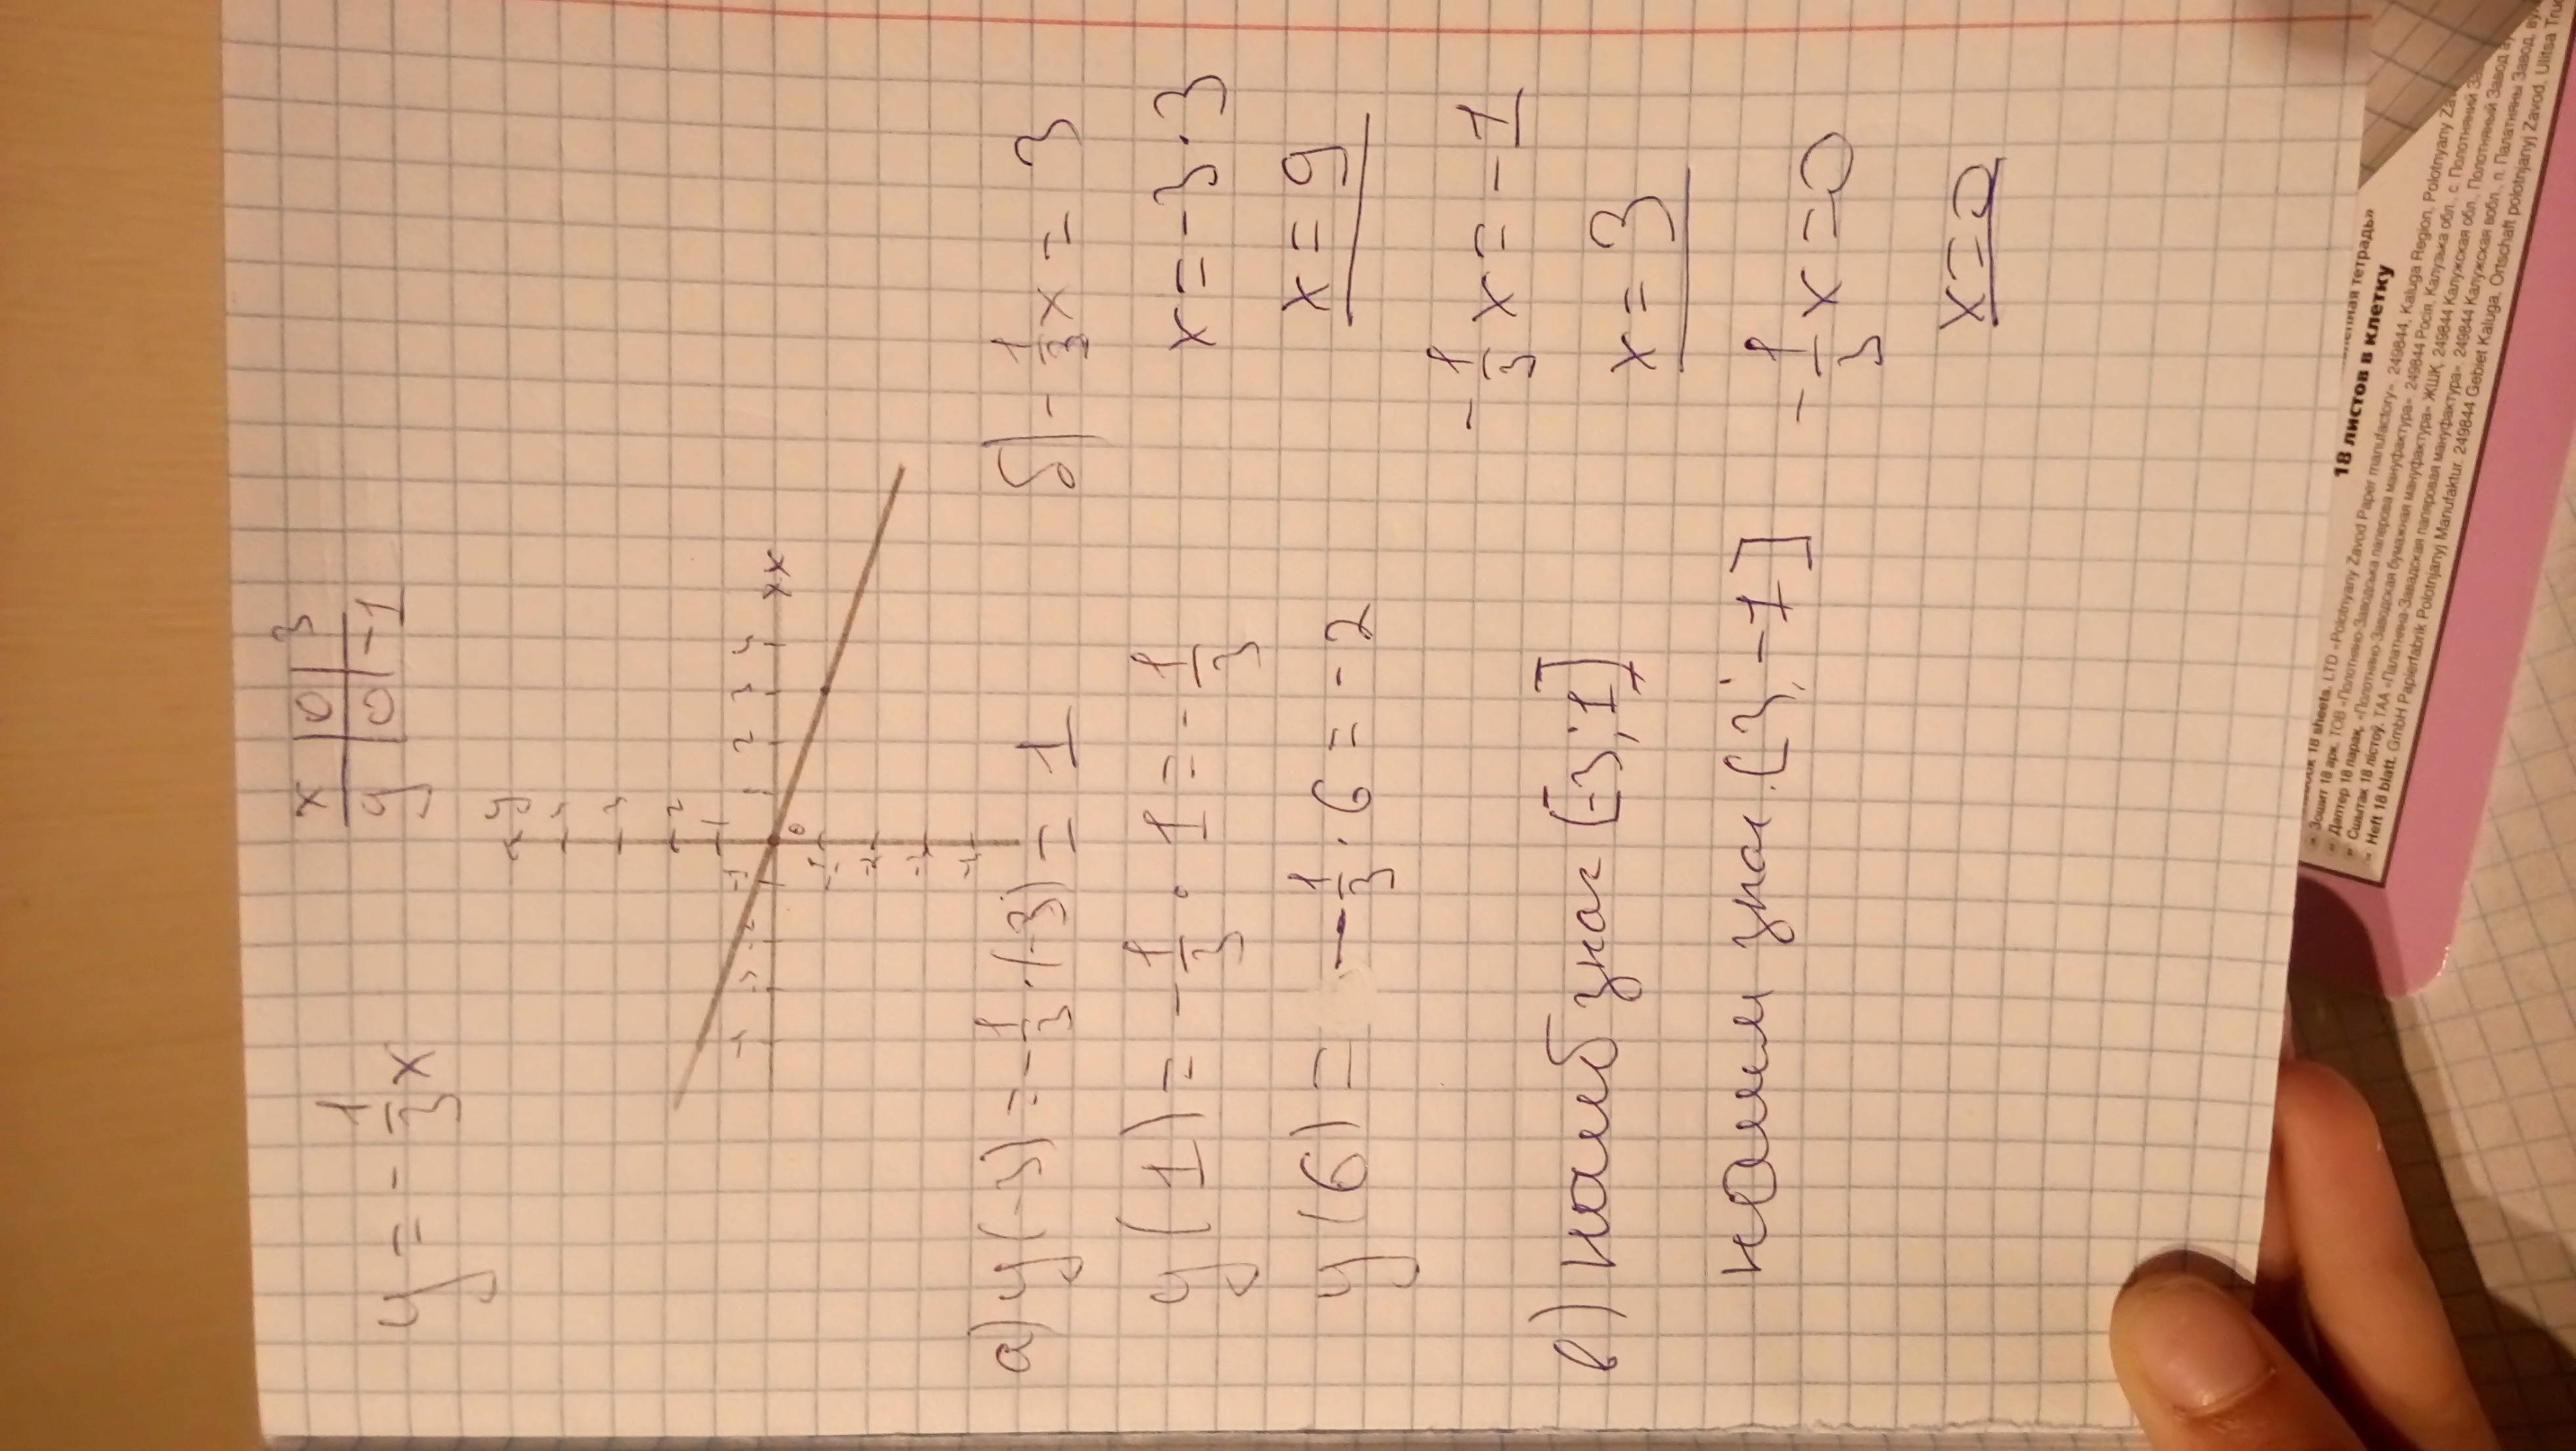 y = -1/3x
x | 0 | 3
y | 0 | -1
y
4
3
2
1
-4 -3 -2 -1 0 1 2 3 4 x x
-1
-2
-3
-4
а) y(-3) = -1/3·(-3) = 1
y(1) = -1/3 · 1 = -1/3
y(6) = -1/3·6 = -2
б) -1/3x = 3
x = -3·3
x = 9
-1/3x = -1
x = 3
-1/3x = 0
x = 0
в) наиб знач [-3; 1]
наим знач. [3; -1]
18 листов в клетку
18 sheets. LTD «Polotnyany Zavod Paper manufactory». 249844, Kaluga Region, Polotnyany
Зошит 18 арк. ТОВ «Полотняно-Заводська паперова мануфактура» 249844 Росія, Калузька обл., с. Полотняний
Дәптер 18 парақ. «Полотняно-Заводская бумажная мануфактура» ЖШҚ, 249844 Калужская обл., Полотняный Завод
Сшытак 18 лістоў. ТАА «Палатняна-Завадская папяровая мануфактура» 249844 Калужская вобл., п. Палатняны Завод, вул
Heft 18 blatt. GmbH Papierfabrik Polotnjanyj Manufaktur. 249844 Gebiet Kaluga, Ortschaft polotnjanyj Zavod, Ulitsa